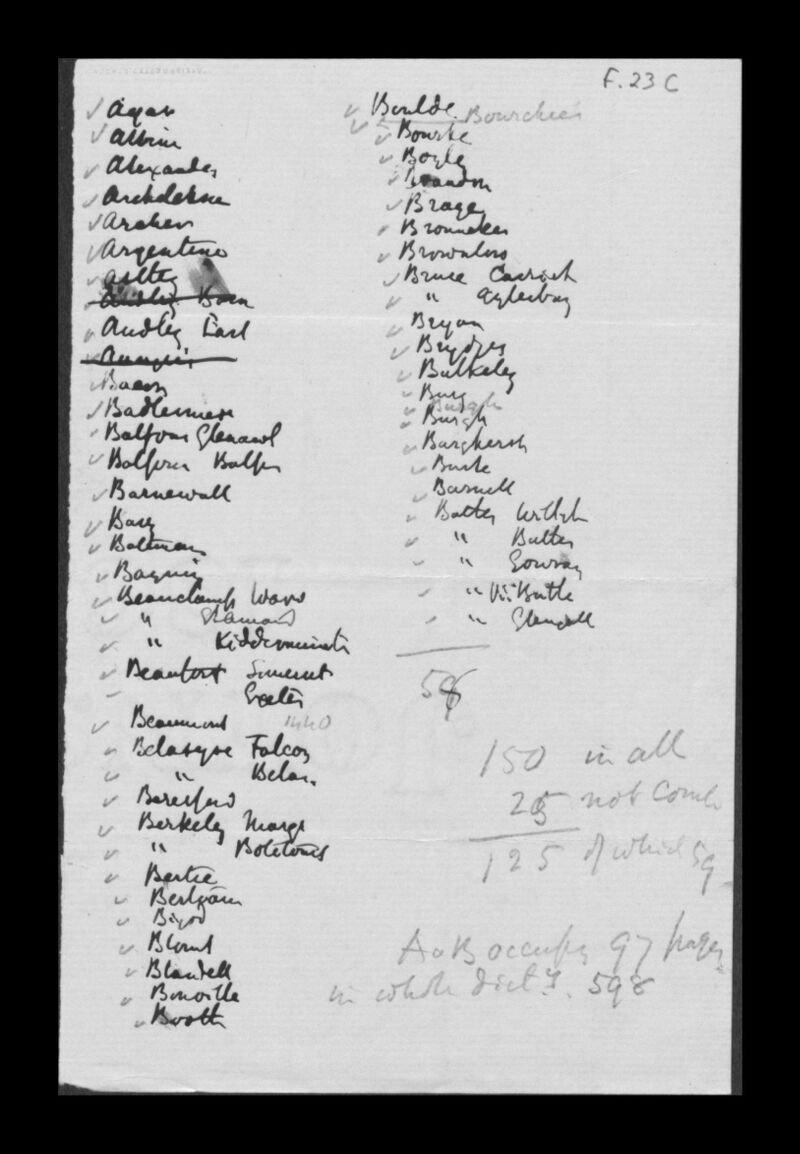 F. 23 C
Agar
Albini
Alexander
Archdekne
Archer
Argentine
Astley
Audley Born
Audley Earl
Bacon
Badlesmere
Balfour Glenawl
Balfour Balfr
Barnewall
Bateman
Bayning
Beauchamp Warw
" Kidderminster
Beaufort Somerset
Exeter
Beaumont 1440
Belasyse Falcon
" Belas.
Beresford
Berkeley Marqs
" Botetourt
Bertie
Bertram
Bigod
Blount
Blundell
Bonville
Booth
Boulde. Bourchier
Bourke
Boyle
Brandon
Bronncker
Brownlow
Bruce Carrick
" Aylesbury
Bryan
Brydges
Bulkeley
Burg
Burgh
Burghersh
Burke
Burnell
Butler Wiltsh
" Butler
" Gowran
" Vis: Butle
" Glendall
150 in all
25 not Comb
125 of which 59
A & B occupy 97 pages
in whole dicty. 598